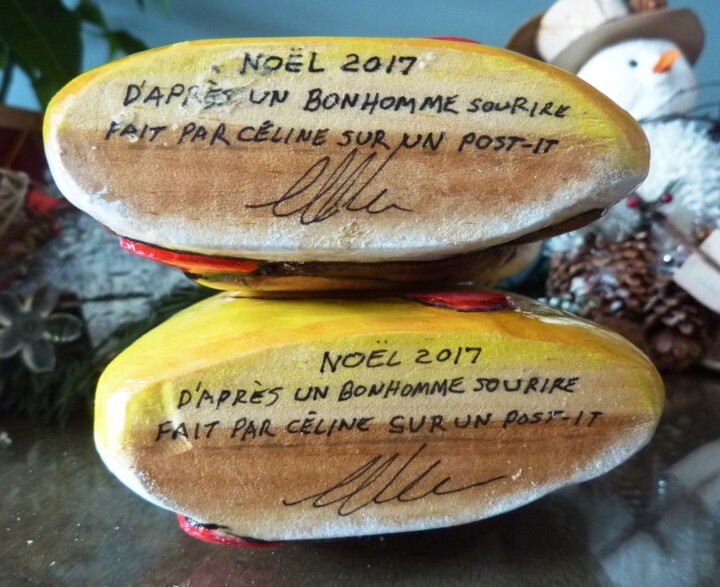 NOËL 2017
D'APRÈS UN BONHOMME SOURIRE
FAIT PAR CÉLINE SUR UN POST-IT
NOËL 2017
D'APRÈS UN BONHOMME SOURIRE
FAIT PAR CÉLINE SUR UN POST-IT